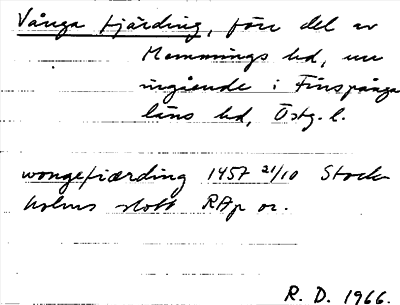 Vånga fjärding, förr del av
Memmings hd, nu
ingående i Finspånga
läns hd, Östg. l.
wongefiærding 1457 21/10 Stock-
holms slott RAp or.
R. D. 1966.